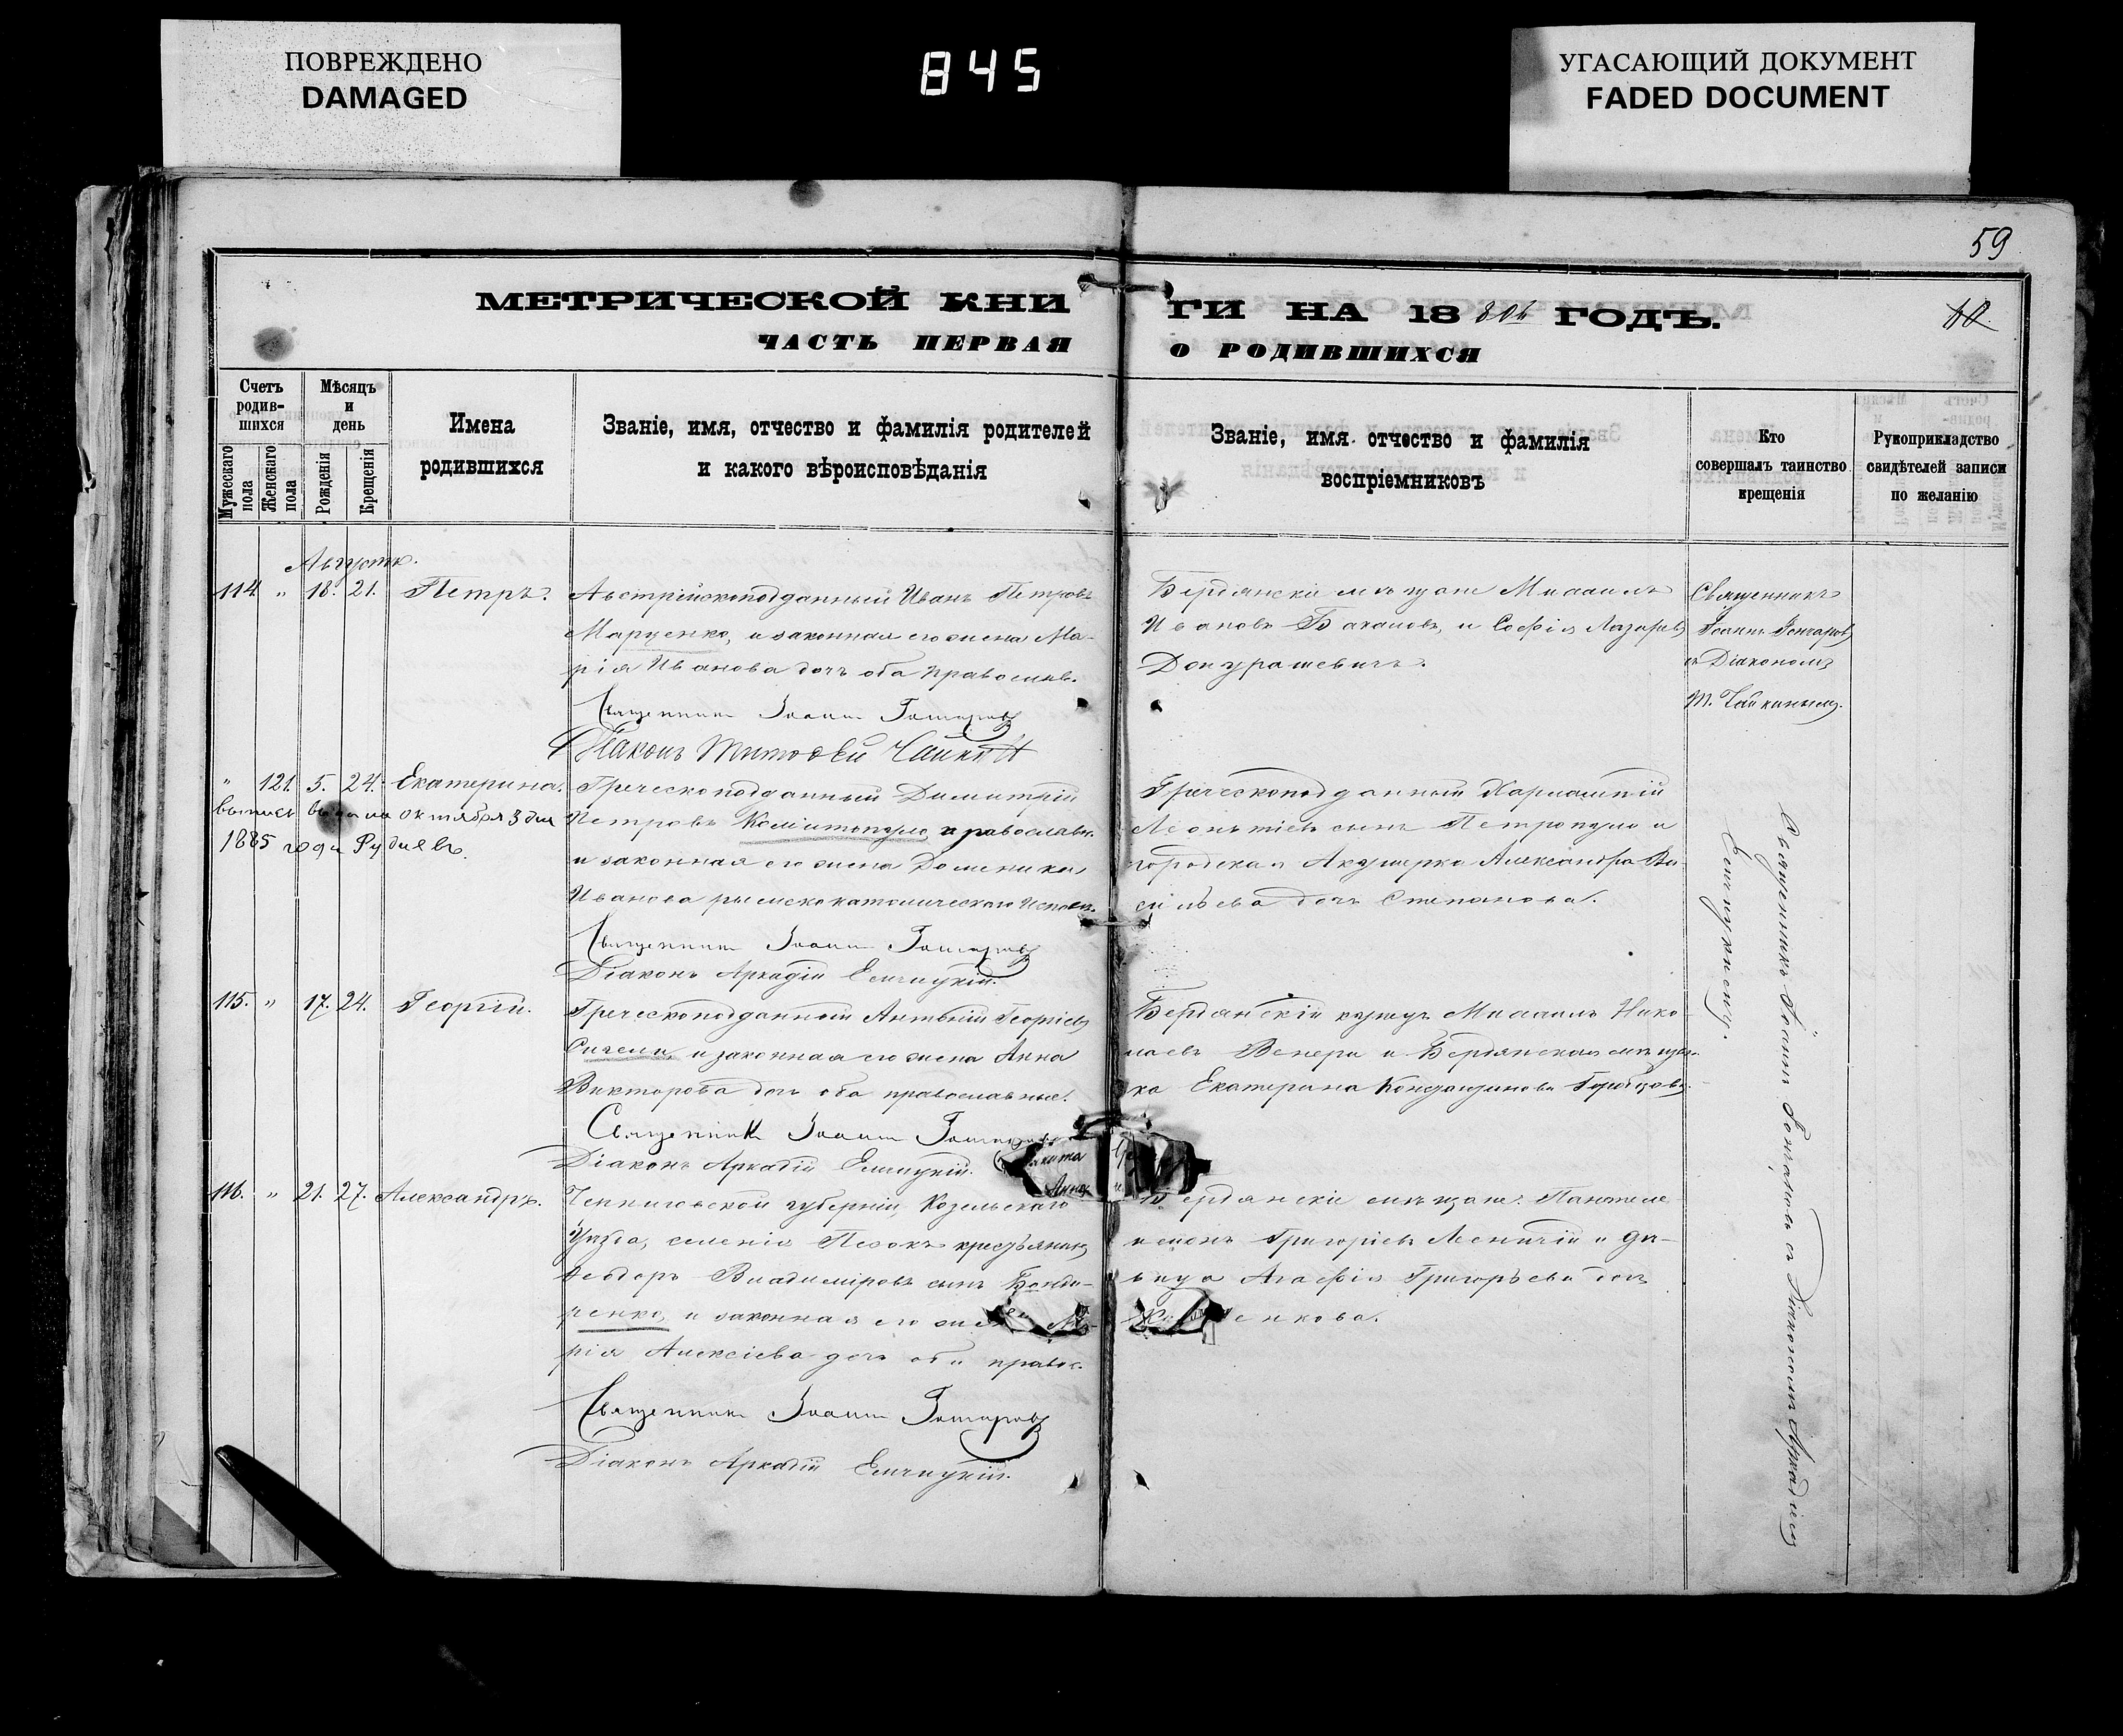 ПОВРЕЖДЕНО
DAMAGED
845
УГАСАЮЩИЙ ДОКУМЕНТ
FADED DOCUMENT
59
МЕТРИЧЕСКОЙ КНИ
ГИ НА 18 ГОДЪ.
ЧАСТЬ ПЕРВАЯ
О РОДИВШИХСЯ
Счетъ родив-шихся
Мужескаго пола
Женскаго пола
Мѣсяцъ и день
Рожденія
Крещенія
Имена
родившихся
Званіе, имя, отчество и фамилія родителей
и какого вѣроисповѣданія
Званіе, имя отчество и фамилія
воспріемниковъ
Кто
совершалъ таинство
крещенія
Рукоприкладство
свидѣтелей записи
по желанію
Августъ.
114 " 18. 21. Петръ.
Австрійскоподданный Иванъ Петровъ
Марценко, и законная его жена Ма-
рія Иванова дочь оба православ.
Священникъ Іоаннъ Гончаровъ
Діаконъ Тимофей Чайкинъ
Бердянскіе мѣщане Михаилъ
Ивановъ и Софія Лазарева
Священникъ
Іоаннъ Гончаровъ
съ Діакономъ
Т. Чайкинымъ.
" 121. 5. 24. Екатерина.
выпись выдана октября 3 дня
1885 года
Греческоподданный Димитрій
Петровъ православн.
и законная его жена Доменика
Иванова римскокатолическаго исповѣд.
Священникъ Іоаннъ Гончаровъ
Діаконъ Аркадій
Греческоподданный Харлампій
Леонтіевъ сынъ Петропуло и
городская Акушерка Александра Ва-
сильева дочь Степанова.
115. " 17. 24. Георгій.
Греческоподданный Антоній Георгіевъ
и законная его жена Анна
Викторова дочь оба православные.
Священникъ Іоаннъ Гончаровъ
Діаконъ Аркадій
Бердянскій купецъ Михаилъ Нико-
лаевъ Венери и Бердянская мѣщан-
ка Екатерина
116. " 21. 27. Александръ.
Черниговской губерніи, Козельскаго
Уѣзда, селенія крестьянинъ
Ѳеодоръ Владиміровъ сынъ Бонда-
ренко, и законная его жена Ма-
рія Алексіева дочь оба правос.
Священникъ Іоаннъ Гончаровъ
Діаконъ Аркадій
Бердянскіе мѣщане: Пантеле-
имонъ Григорьевъ и дѣ-
вица Агафія Григорьева дочь
енкова.
Священникъ Іоаннъ Гончаровъ съ Діакономъ Аркадіемъ